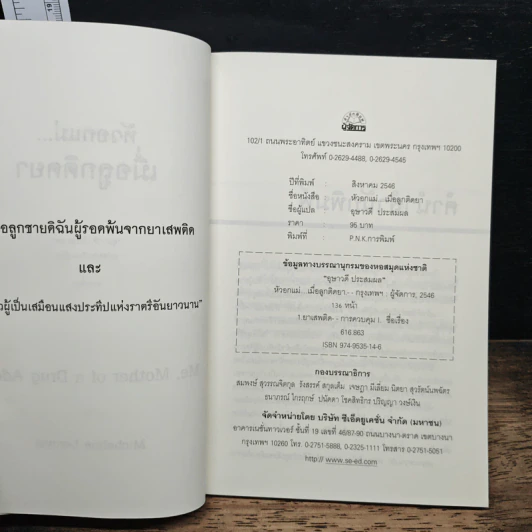 19
อลูกชายดิฉันผู้รอดพ้นจากยาเสพติด
และ
ผู้เป็นเสมือนแสงประทีปแห่งราตรีอันยาวนาน"
ผู้จัดการ
102/1 ถนนพระอาทิตย์ แขวงชนะสงคราม เขตพระนคร กรุงเทพฯ 10200
โทรศัพท์ 0-2629-4488, 0-2629-4545
ปีที่พิมพ์ : สิงหาคม 2546
ชื่อหนังสือ : หัวอกแม่...เมื่อลูกติดยา
ชื่อผู้แปล : อุษาวดี ประสมผล
ราคา : 95 บาท
พิมพ์ที่ : P.N.K.การพิมพ์
ข้อมูลทางบรรณานุกรมของหอสมุดแห่งชาติ
"อุษาวดี ประสมผล"
หัวอกแม่...เมื่อลูกติดยา - - กรุงเทพฯ : ผู้จัดการ, 2546
136 หน้า
1.ยาเสพติด- - การควบคุม I. ชื่อเรื่อง
616.863
ISBN 974-9535-14-6
กองบรรณาธิการ
สมพงษ์ สุวรรณจิตกุล รังสรรค์ สกุลเต็ม เจษฎา มีเลี่ยม นิตยา สุวรัตน์บพฉัตร
ธนาภรณ์ ไกรฤกษ์ ปนัดดา โชคสิทธิกร ปริญญา วงษ์เงิน
จัดจำหน่ายโดย บริษัท ซีเอ็ดยูเคชั่น จำกัด (มหาชน)
อาคารเนชั่นทาวเวอร์ ชั้นที่ 19 เลขที่ 46/87-90 ถนนบางนา-ตราด เขตบางนา
กรุงเทพฯ 10260 โทร. 0-2751-5888, 0-2325-1111 โทรสาร 0-2751-5051
http:// www.se-ed.com